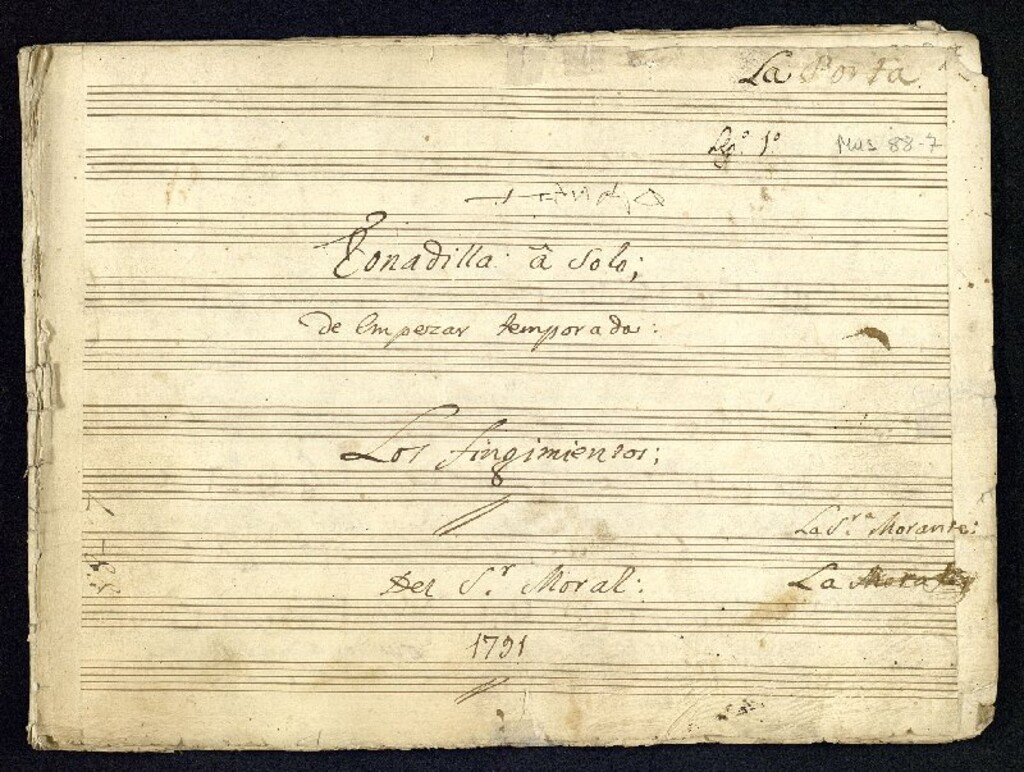 La Porta.
Leg.º 1.º Mus 88-7
Tonadilla â Solo;
de Empezar temporada:
Los fingimientos;
La S.ra Morante:
Del S.r Moral: La
1791